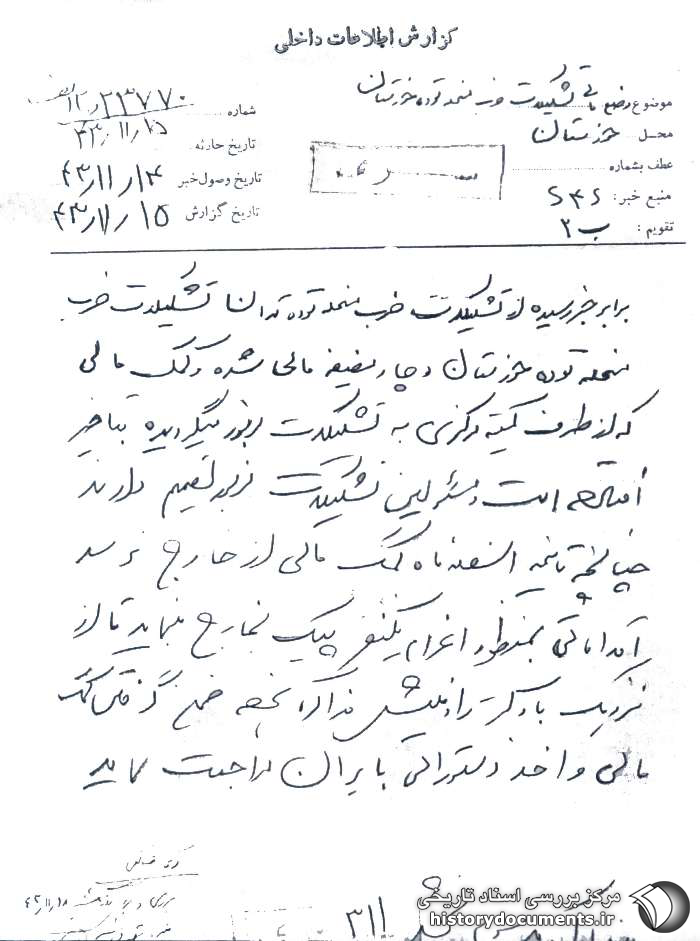 گزارش اطلاعات داخلی
موضوع وضع مالی تشکیلات حزب منحله توده خوزستان
محل خوزستان
عطف بشماره
منبع خبر:
تقویم: ب ۲
شماره ۲۳۷۷۰
تاریخ حادثه
تاریخ وصول خبر ۴۳/۱۱/۱۴
تاریخ گزارش ۴۳/۱۱/۱۵
برابر خبر رسیده از تشکیلات حزب منحله توده تهران تشکیلات حزب
منحله توده خوزستان دچار مضیقه مالی شده و کمک مالی
که از طرف کمیته مرکزی به تشکیلات مزبور میگردیده بتاخیر
افتاده است و مسئولین تشکیلات مزبور تصمیم دارند
چنانچه تا نیمه اسفند ماه کمک مالی از خارج نرسد
اقداماتی بمنظور اعزام یکنفر پیک بخارج بنماید تا از
نزدیک با دکتر رادمنش مذاکره نموده ضمن گرفتن کمک
مالی و اخذ دستوراتی بایران مراجعت نماید
۳۱۱
مرکز بررسی اسناد تاریخی
historydocuments.ir